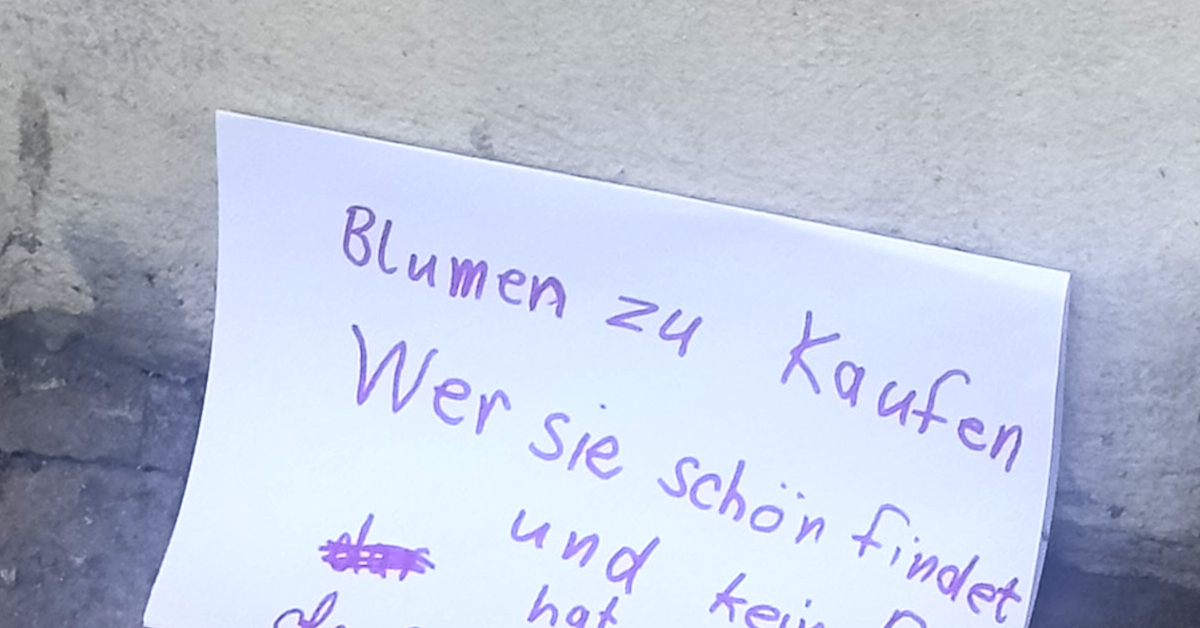 Blumen zu Kaufen
Wer sie schön findet
und kein
hat